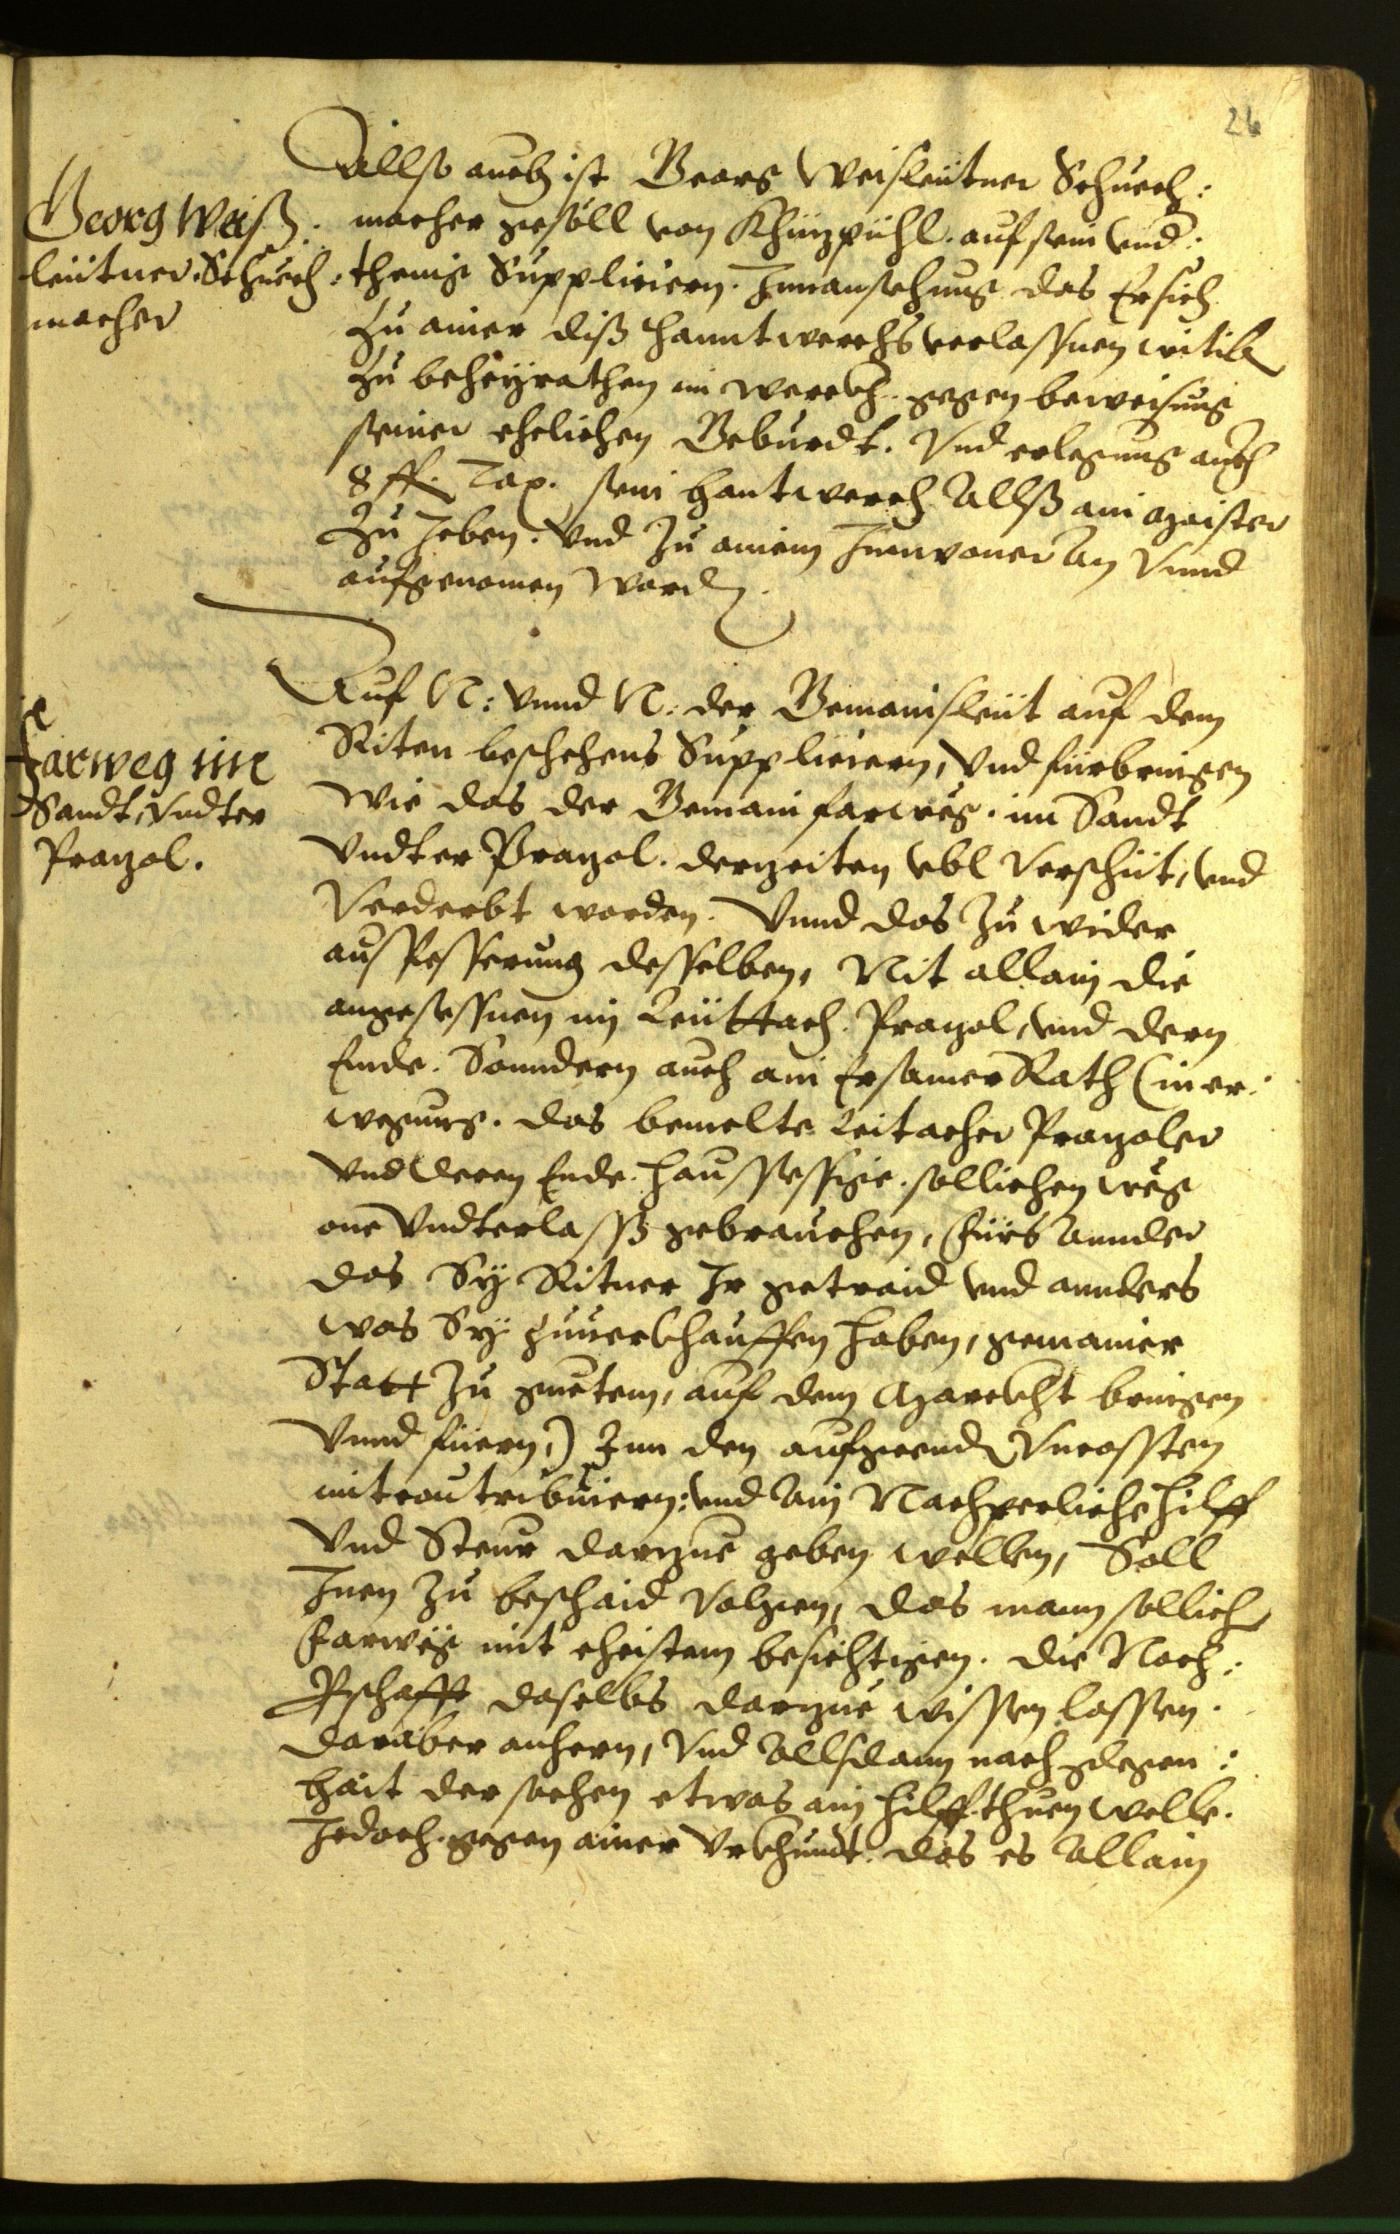 26
Georg Weiß:
leütner. Schuech:
macher
Allso auch ist Georg Weisleütner Schuech:
macher gesöll von Khüzpühl. auf sein vnd:
thenig Supplicieren. Innansehung das Er sich
zu ainer diß hanntwerchs verlassnen witib
zu beheyrathen im werckh. gegen beweisung
seiner ehelichen Geburdt. Vnd erlegung auch
8 fl. Tax. sein hantwerch Allß ain maister
zu Jeben. Vnd zu ainem Innwoner an Vnnd
aufgenomen word[en].
Farweg im
Sandt, Vndter
Prazol.
Auf N: vnnd N: der Gemainsleüt auf dem
Riten beschehens Supplicieren, Vnd fürbringen
Wie das der Gemain farweg. im Sandt
Vndter Prazol. derzeiten vbl Verschüt, vnd
Verderbt worden. Vnnd das zu wider
auspesserung desselben, Nit allain die
angesessnen in Leüttach. Prazol, vnd dern
Ende. Sonndern auch ain Ersamer Rath (in er:
wegung. das bemelte Leitacher Prazoler
vnd deren Ende. haussessige. sollichen weg
one Vndterlasß gebrauchen, fürs annder
das Sy Ritner Ir getraid vnd annders
was Sy zuuerkhauffen haben, gemainer
Statt zu guetem, auf dem Marckht bringen
Vnnd füern,) Inn den aufgeend[en] Vncossten
mitcontribuiern: vnd ain Nachperliche hilff
Vnd Steur darzue geben wellen, Soll
Inen zu beschaid Volgen, das mann sollich[en]
farweg mit eheistem besichtigen. die Noch:
Pschafft daselbs darzue wissen lassen.
darüber anhern, Vnd Allsdann nach glegen:
hait der sachen etwas ain hilff thuen welle.
Jedoch. gegen ainer Vrkhundt. das es Allain